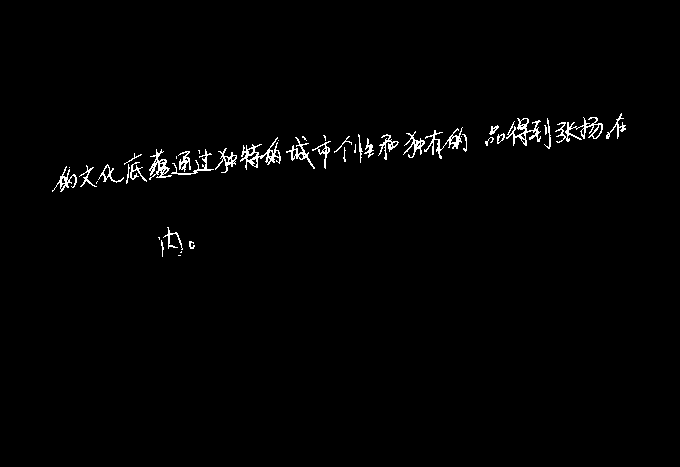 的文化底蕴通过独特的城市个性和独有的 品得到张扬。在
内。